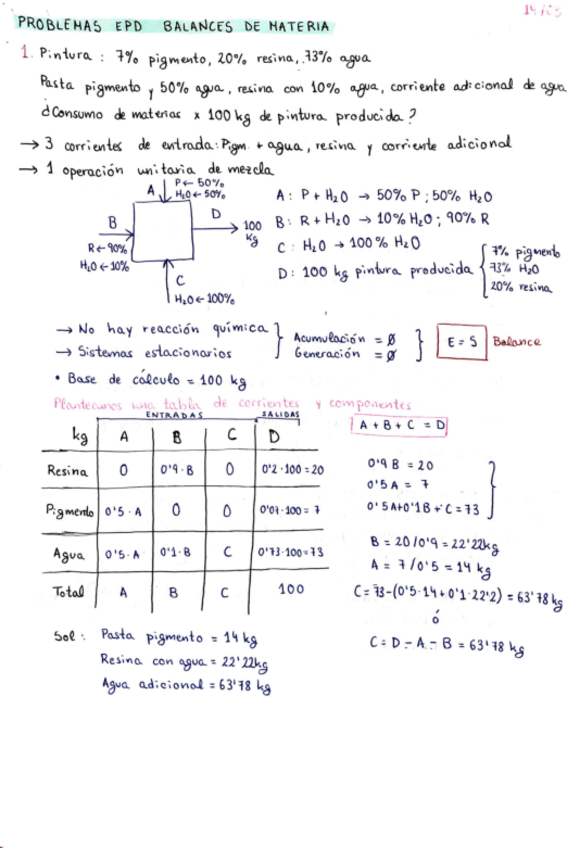 14/03
PROBLEMAS EPD BALANCES DE MATERIA
1. Pintura : 7% pigmento, 20% resina, 73% agua
Pasta pigmento y 50% agua, resina con 10% agua, corriente adicional de agua
¿Consumo de materias x 100 kg de pintura producida?
→ 3 corrientes de entrada: Pigm. + agua, resina y corriente adicional
→ 1 operación unitaria de mezcla
A P ← 50%
H₂O ← 50%
B
R ← 90%
H₂O ← 10%
D
100 kg
C
H₂O ← 100%
A : P + H₂O → 50% P ; 50% H₂O
B : R + H₂O → 10% H₂O ; 90% R
C : H₂O → 100% H₂O
D : 100 kg pintura producida { 7% pigmento
73% H₂O
20% resina
→ No hay reacción química
→ Sistemas estacionarios
Acumulación = Ø
Generación = Ø
E = S Balance
• Base de cálculo = 100 kg
Planteamos una tabla de corrientes y componentes
ENTRADAS SALIDAS
kg A B C D
Resina 0 0'9·B 0 0'2·100=20
Pigmento 0'5·A 0 0 0'07·100=7
Agua 0'5·A 0'1·B C 0'73·100=73
Total A B C 100
A + B + C = D
0'9 B = 20
0'5 A = 7
0'5A+0'1B + C = 73
B = 20/0'9 = 22'22kg
A = 7/0'5 = 14 kg
C = 73-(0'5·14+0'1·22'2) = 63'78 kg
ó
C = D - A - B = 63'78 kg
Sol : Pasta pigmento = 14 kg
Resina con agua = 22'22kg
Agua adicional = 63'78 kg